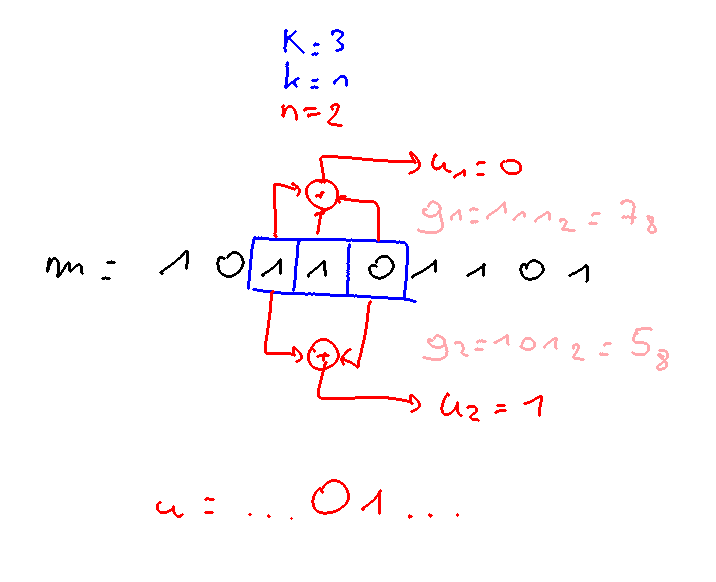 K=3
k=1
n=2
u₁=0
+
g1=111₂=7₈
m= 101101101
+
g2=101₂=5₈
u₂=1
u=...01...